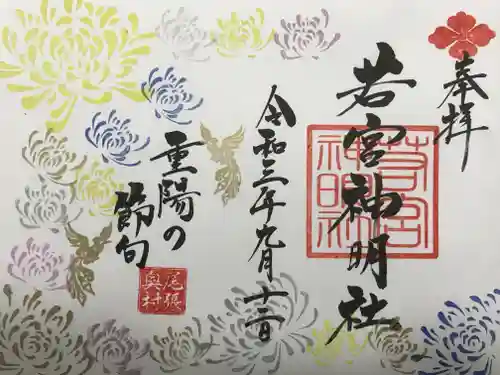 奉拝
若宮神明社
若宮
神明社
令和三年九月十三日
重陽の
節句
尾張
奥村